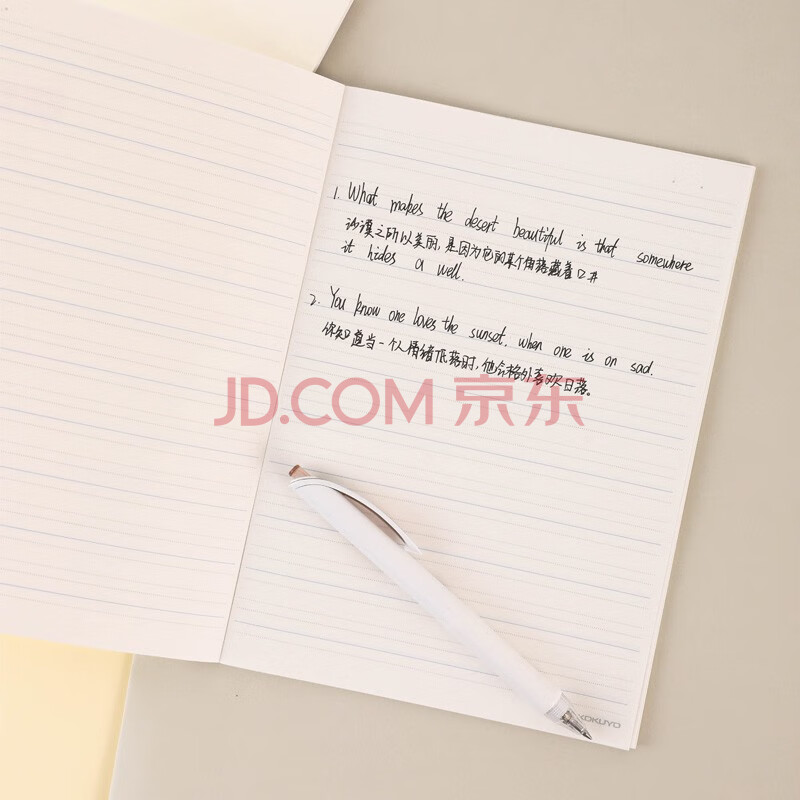 1. What makes the desert beautiful is that somewhere
沙漠之所以美丽,是因为它的某个角落藏着口井
it hides a well.
2. You know one loves the sunset, when one is on sad.
你知道当一个人情绪低落时,他会格外喜欢日落。
JD.COM 京东
KOKUYO